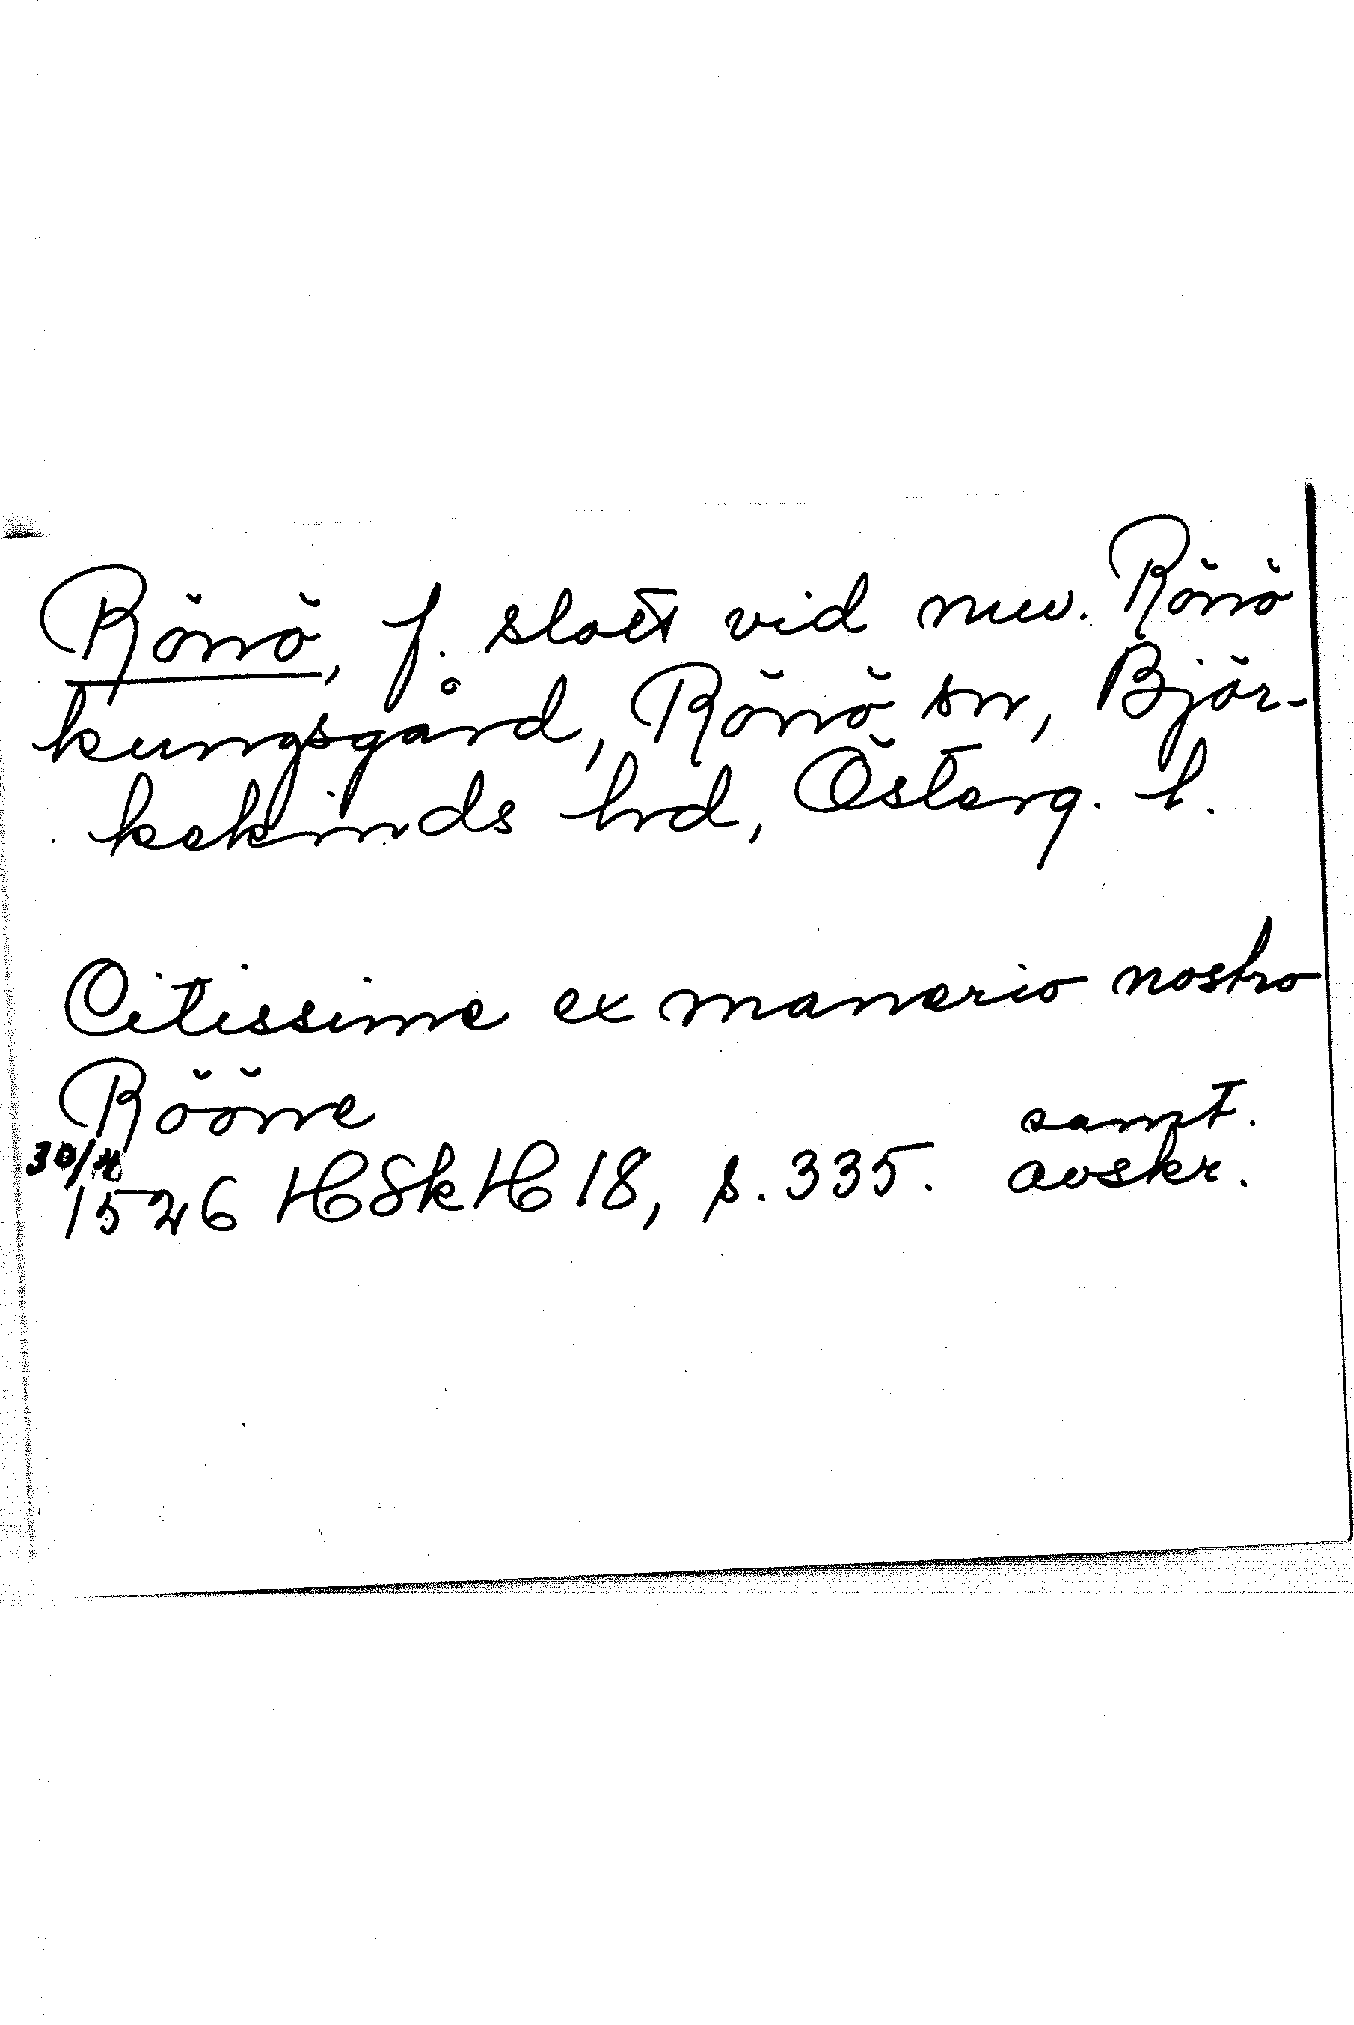 Rönö, f. slott vid nuv. Rönö
kungsgård, Rönö sn, Björ-
kekinds hd, Österg. l.
Citissime ex manerio nostro
Rööne
samt.
1526 HSkH 18, s. 335. avskr.